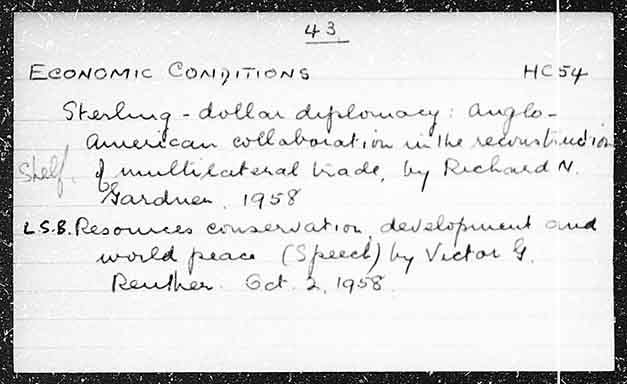 43
ECONOMIC CONDITIONS HC54
Sterling-dollar diplomacy: Anglo-
American collaboration in the reconstruction
Shelf. of multilateral trade, by Richard N.
Gardner, 1958
L.S.B. Resources conservation, development and
world peace (Speech) by Victor G.
Reuther. Oct. 2, 1958.